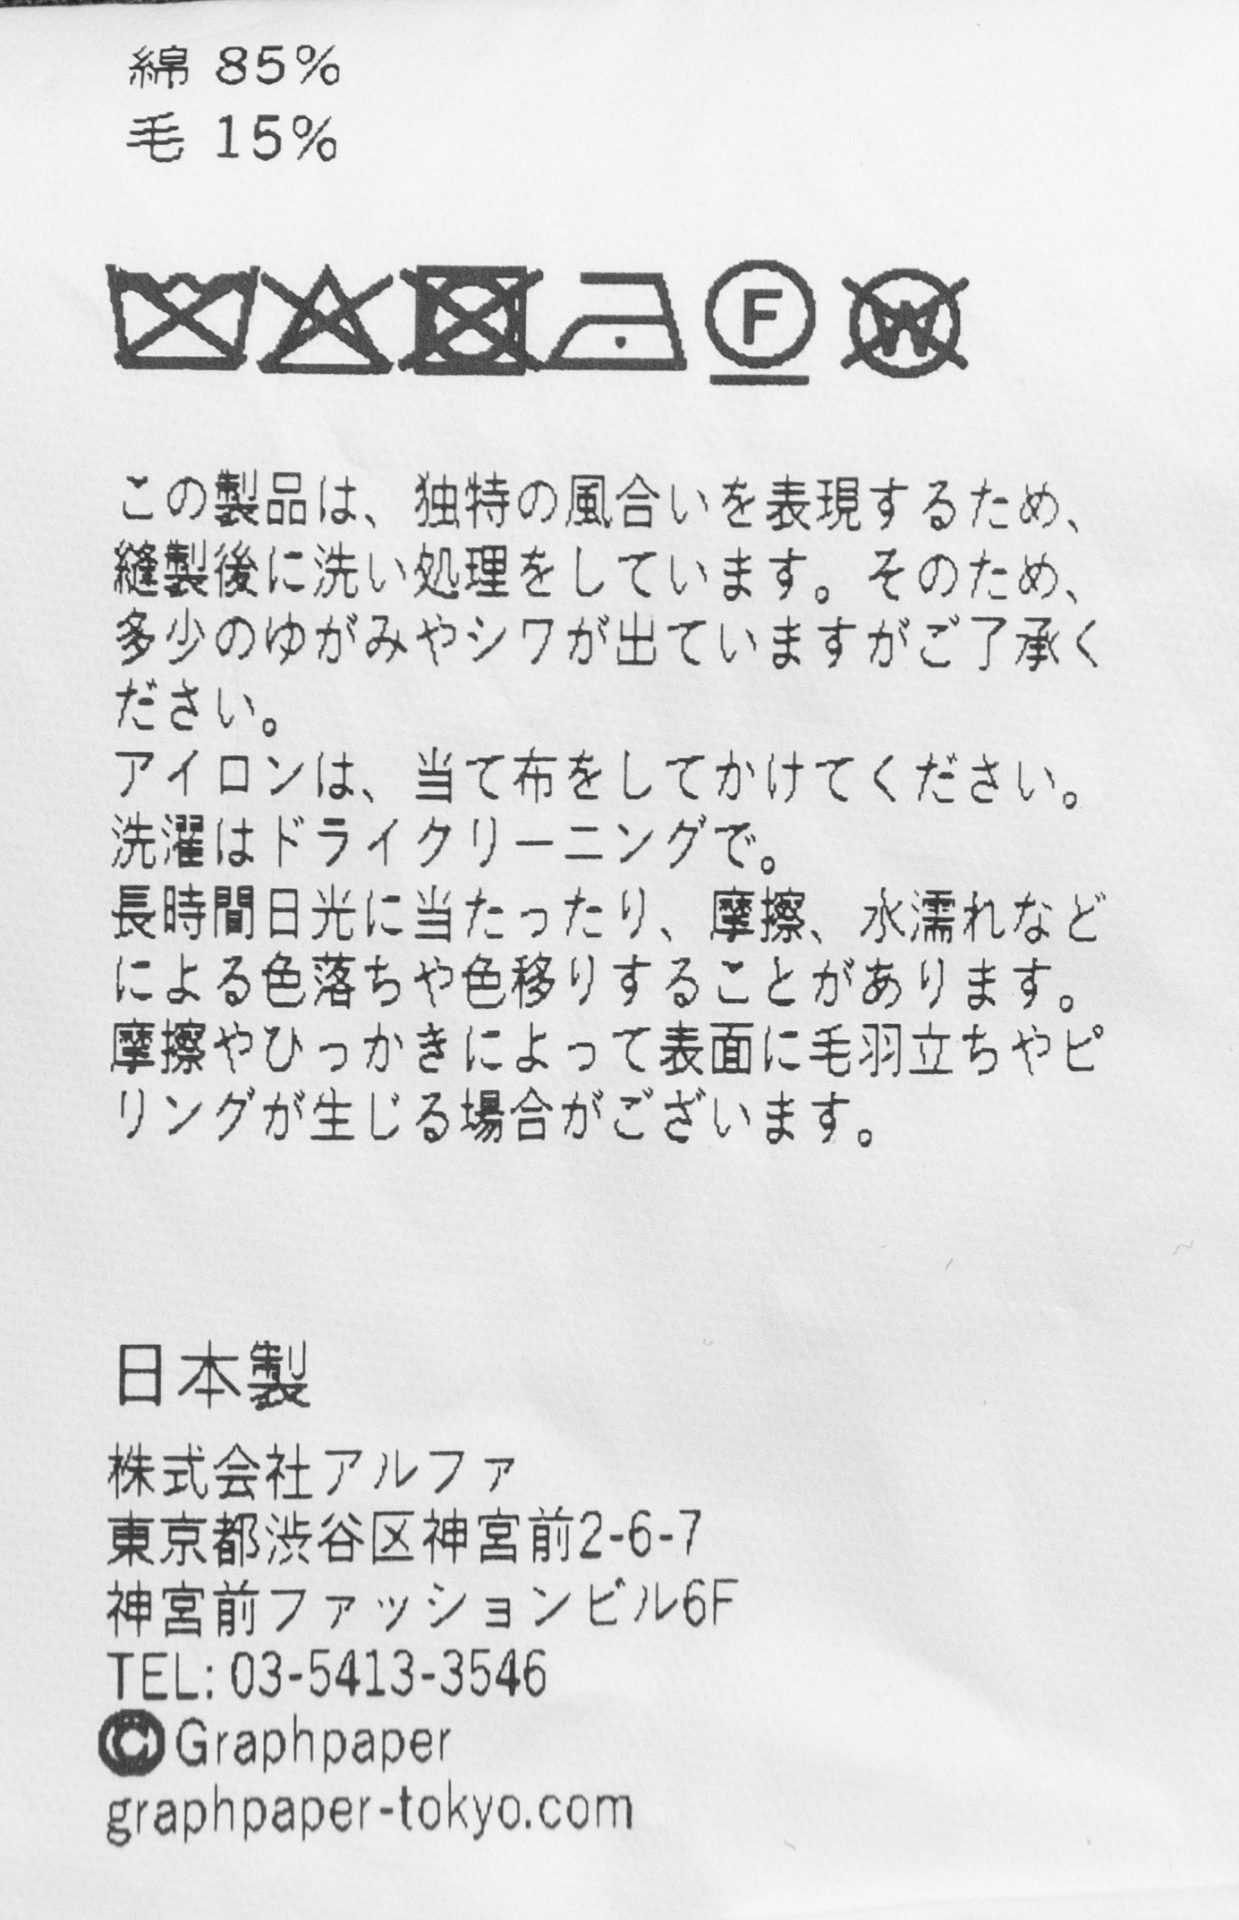 綿 85%
毛 15%
F
W
この製品は、独特の風合いを表現するため、
縫製後に洗い処理をしています。そのため、
多少のゆがみやシワが出ていますがご了承く
ださい。
アイロンは、当て布をしてかけてください。
洗濯はドライクリーニングで。
長時間日光に当たったり、摩擦、水濡れなど
による色落ちや色移りすることがあります。
摩擦やひっかきによって表面に毛羽立ちやピ
リングが生じる場合がございます。
日本製
株式会社アルファ
東京都渋谷区神宮前2-6-7
神宮前ファッションビル6F
TEL: 03-5413-3546
©Graphpaper
graphpaper-tokyo.com